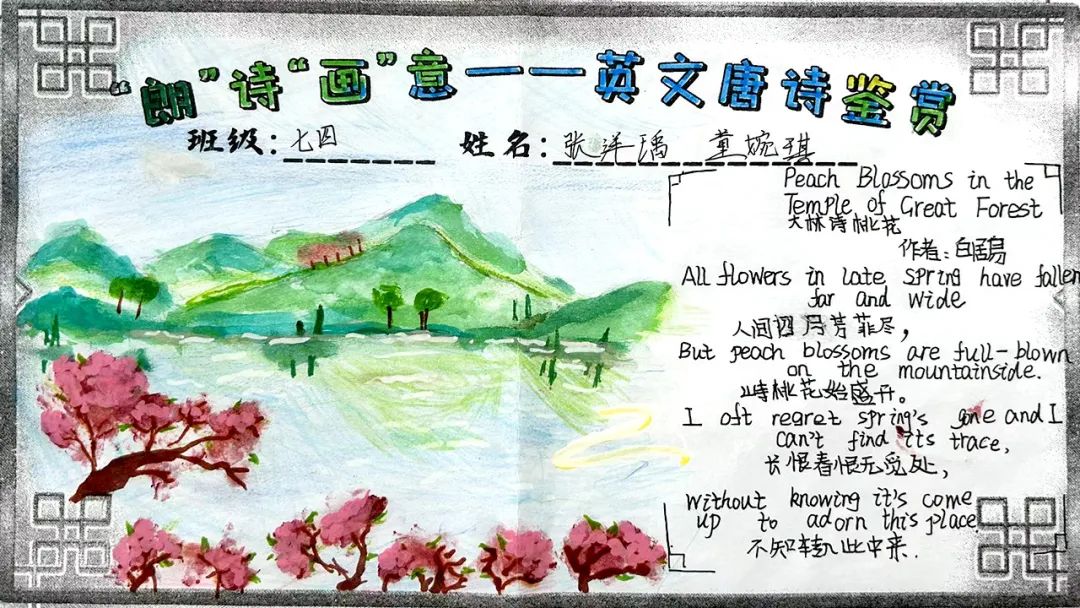 “朗”诗“画”意——英文唐诗鉴赏
班级：七四 姓名：张洋瑀 董婉琪
Peach Blossoms in the
Temple of Great Forest
大林诗桃花
作者：白居易
All flowers in late spring have fallen
far and wide
人间四月芳菲尽，
But peach blossoms are full-blown
on the mountainside.
桃花始盛开。
I oft regret spring's gone and I
can't find its trace,
长恨春恨无觅处，
Without knowing it's come
up to adorn this place
不知转此中来.